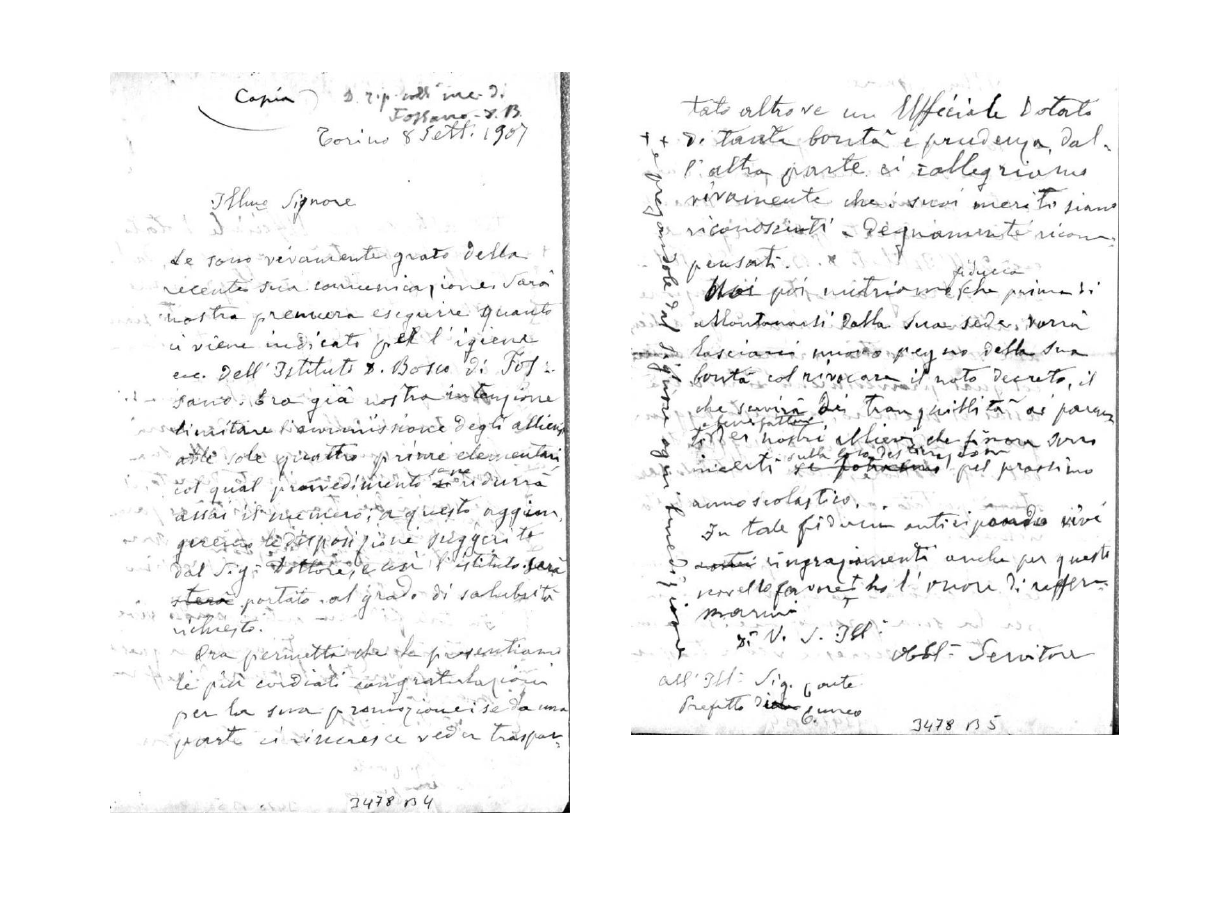 Copia
Fossano - D. B.
Torino 8 Sett. 1907
Illmo Signore
Le sono vivamente grato della
recente sua comunicazione. Sarà
nostra premura eseguire quanto
ci viene indicato per l'igiene
ecc. dell'Istituto D. Bosco di Fos-
sano. Era già nostra intenzione
limitare l'ammissione degli allievi
alle sole quattro prime elementari
col qual provvedimento se ne ridurrà
assai il numero; a questo aggiun
geremo le disposizioni suggerite
dal Sig. Dottore, e così l'istituto sarà
portato al grado di salubrità
richiesto.
Ora permetta che le presentiamo
le più cordiali congratulazioni
per la sua promozione; se da una
parte ci rincresce veder traspor-
3478 B 4
tato altrove un Ufficiale dotato
di tanta bontà e prudenza, dal-
l'altra parte ci rallegriamo
vivamente che i suoi meriti siano
riconosciuti e degnamente ricom-
pensati. x
fiducia
Noi poi nutriamo che prima di
allontanarsi dalla sua sede, vorrà
lasciarci nuovo pegno della sua
bontà col rivocare il noto decreto, il
che servirà di tranquillità ai paren
e benefattori
ti dei nostri allievi che finora sono
incerti sulla loro destinazione pel prossimo
anno scolastico.
In tale fiducia anticipando vivi
ringraziamenti anche per questo
novello favore ho l'onore di raffer-
marmi
Di V. S. Ill.
Obbl. Servitore
All'Ill. Sig. Conte
Prefetto di Cuneo
x + e pregandole dal Signore ogni benedizione
3478 B 5